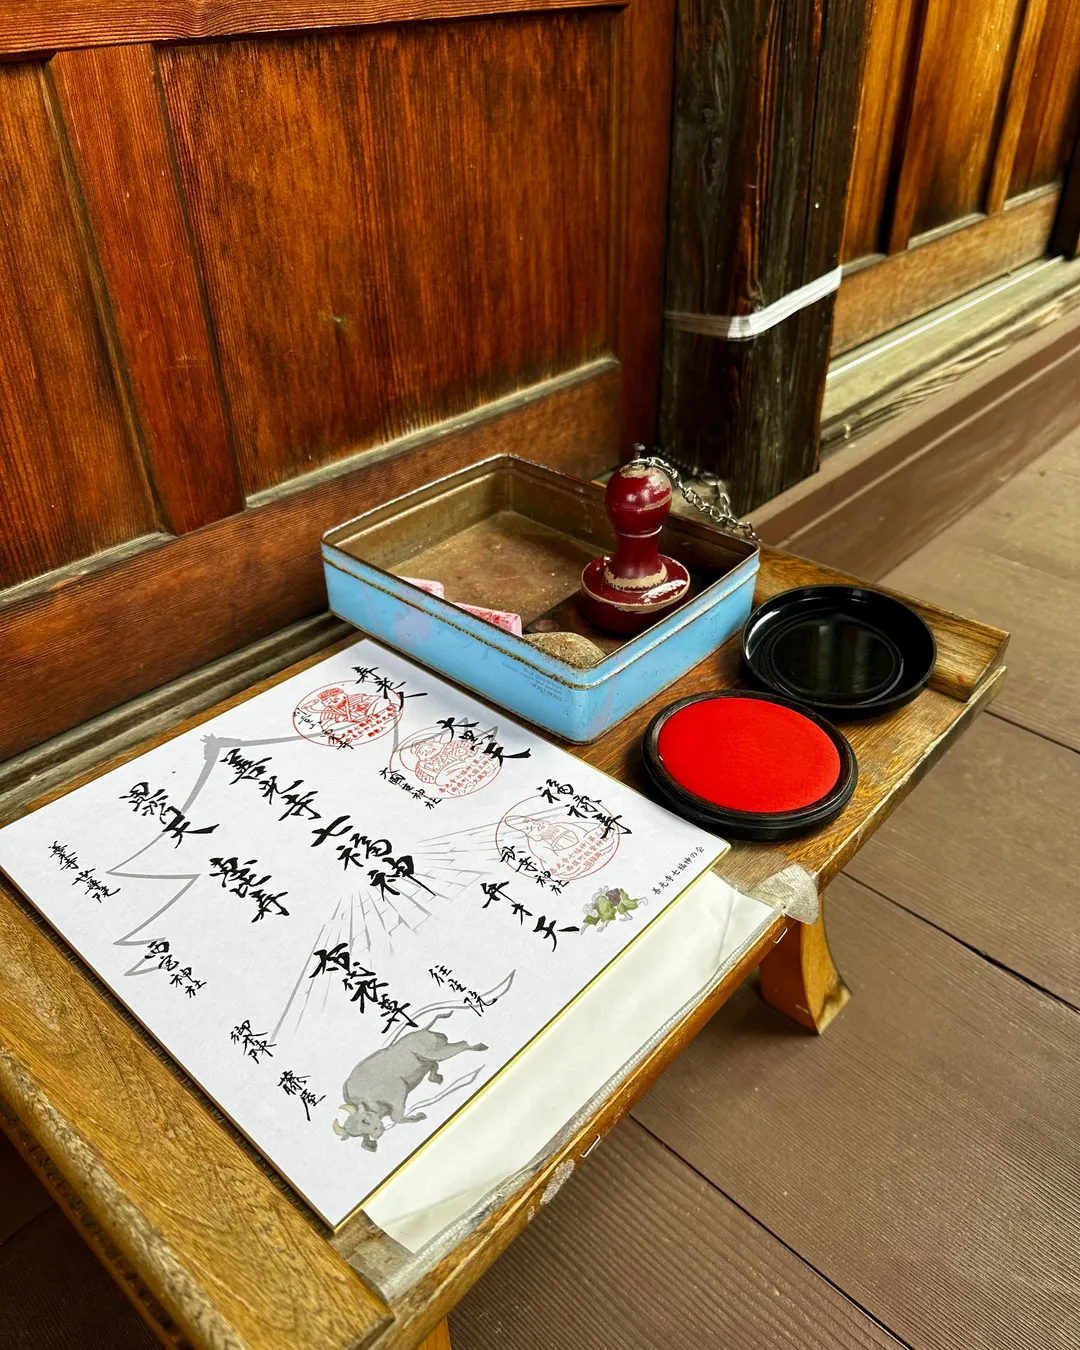 善光寺七福神
寿老人
大黒天
大國主神社
福禄寿
秋葉神社
弁才天
往生院
布袋尊
御本陣
藤屋
恵比寿
西宮神社
毘沙門天
善光寺世尊院
善光寺七福神の会